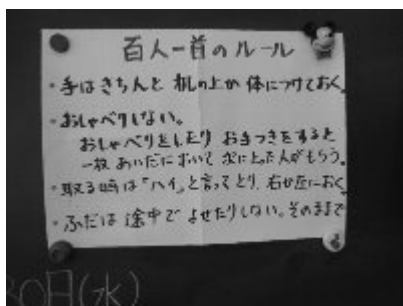 百人一首のルール
・手はきちんと 机の上か 体につけておく。
・おしゃべりしない。
おしゃべりをしたり お手つきをすると
一枚 あいだにおいて 次にとった人がもらう。
・取る時は「ハイ」と言ってとり、右か左におく
・ふだは 途中で よせたりしない。そのままで
30日(水)